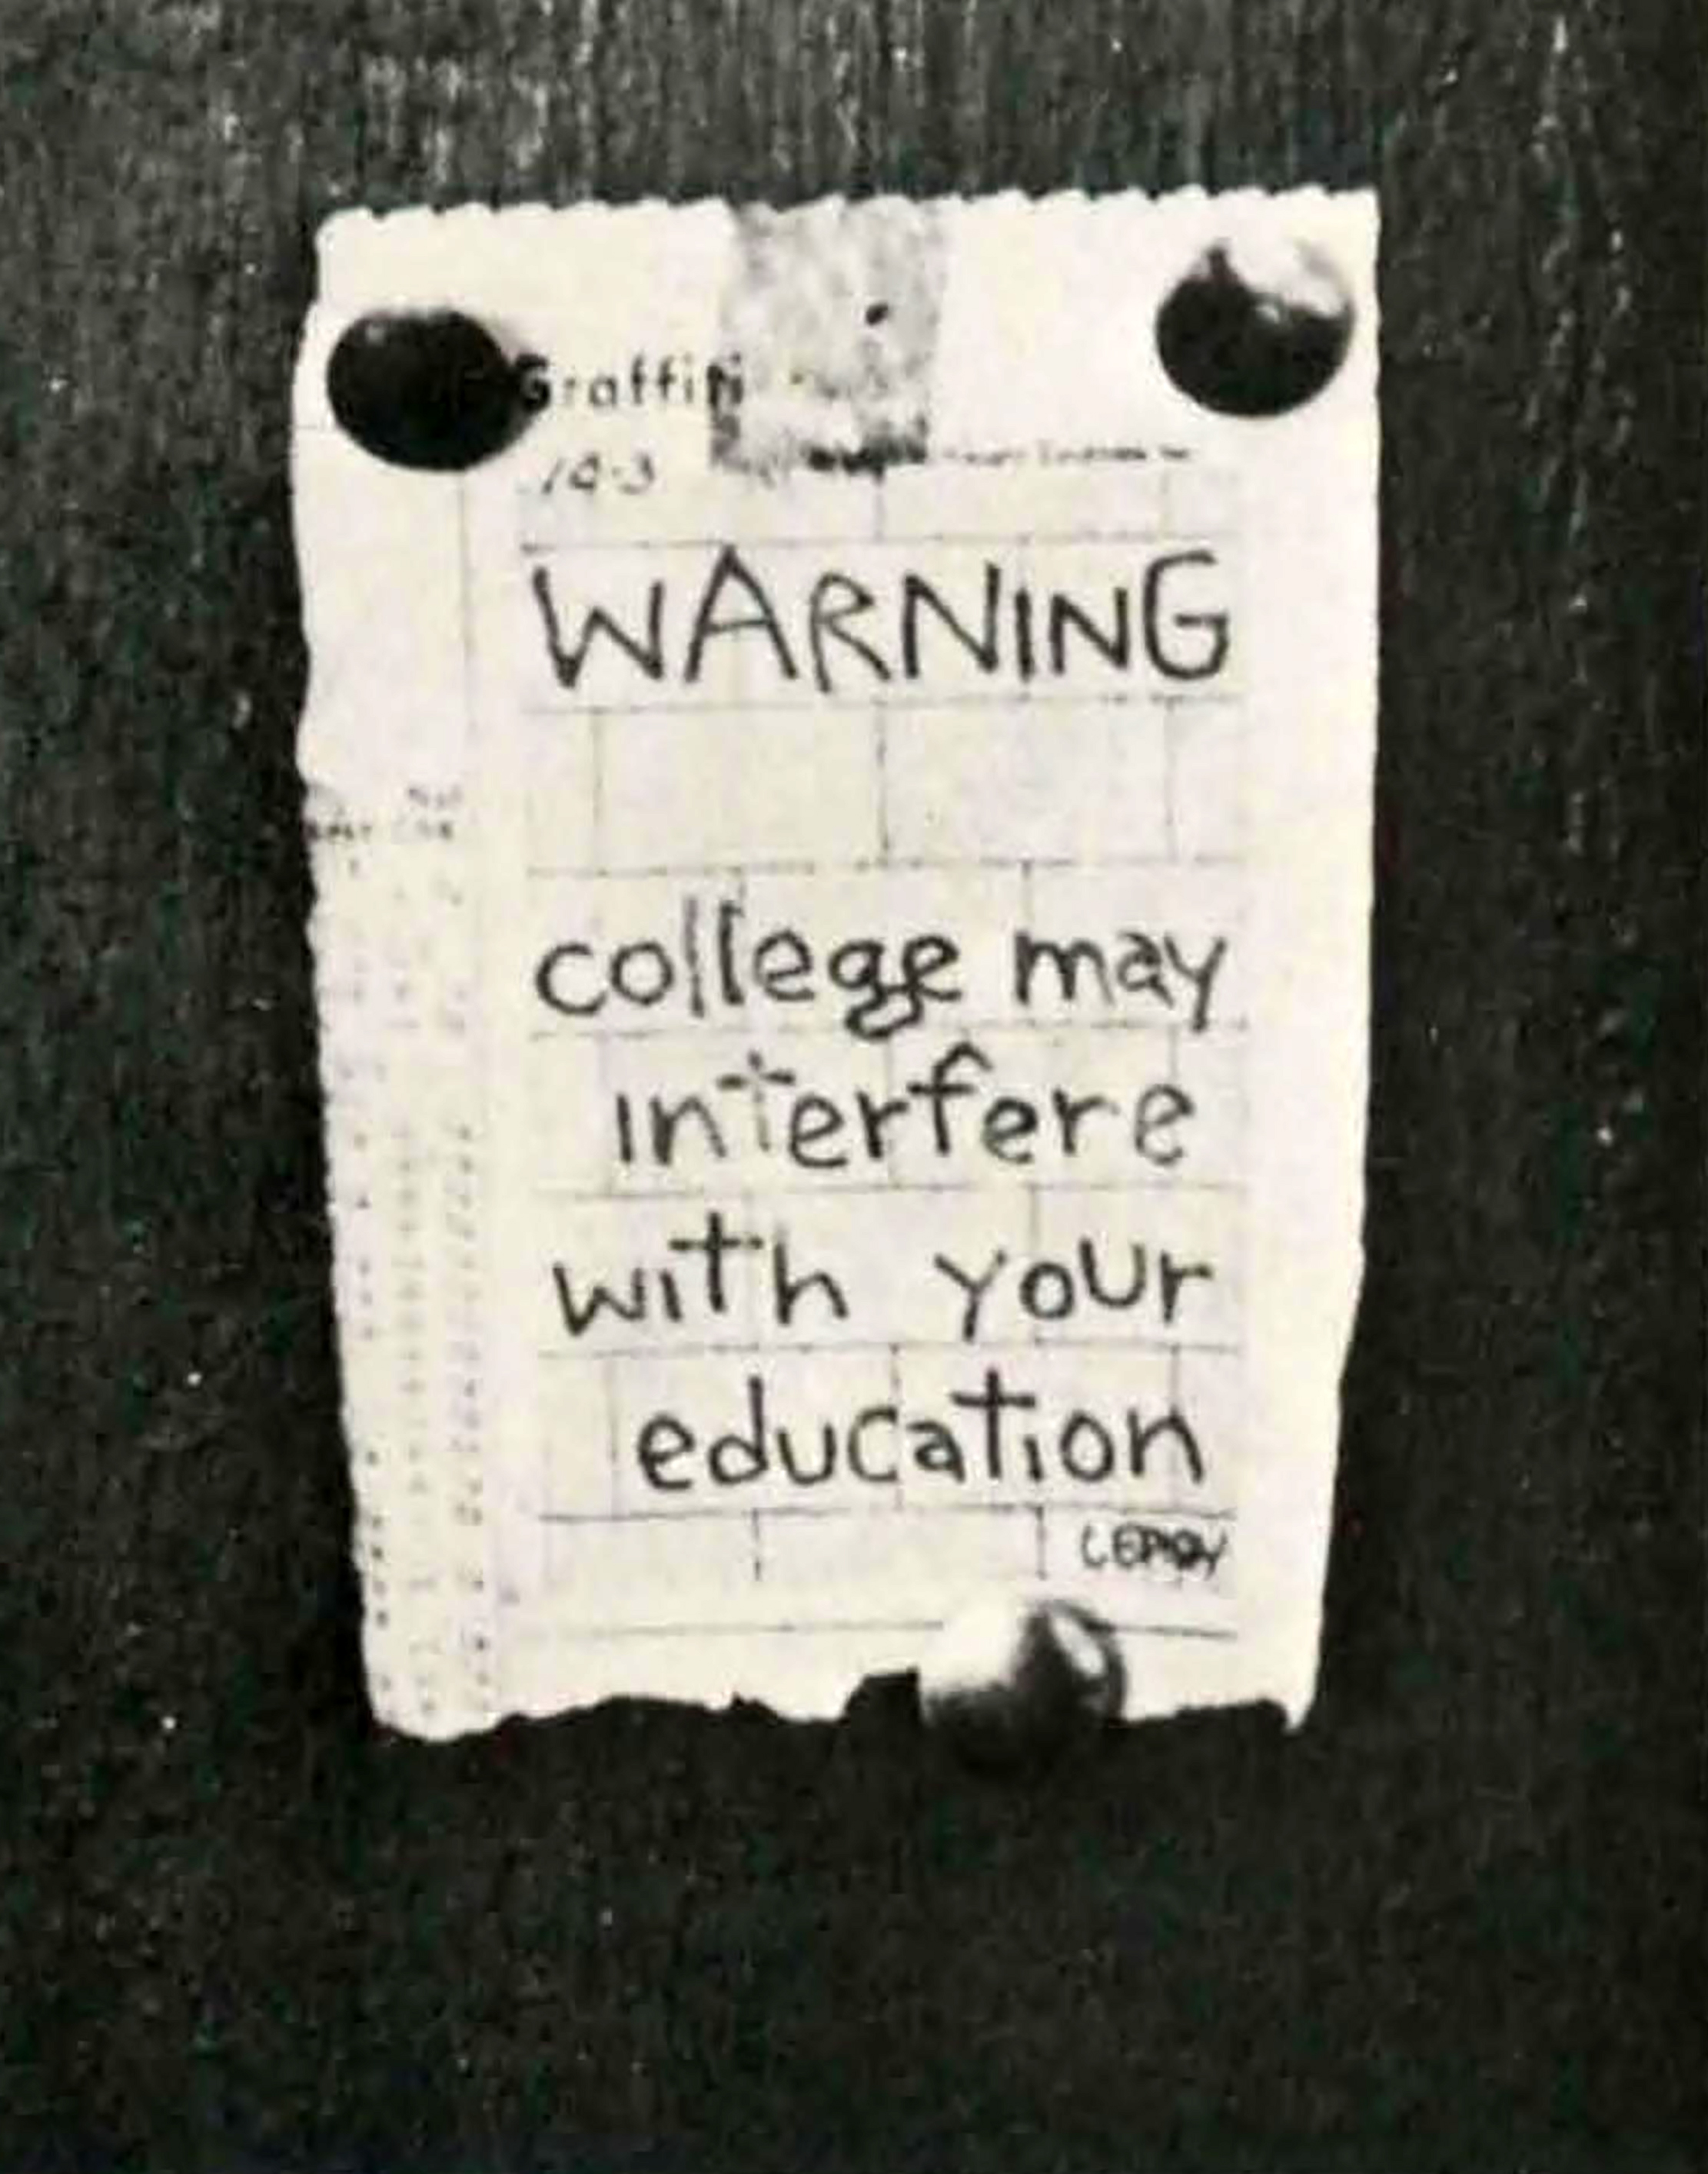 Graffiti
10-3
WARNING
college may
interfere
with your
education
LEARY